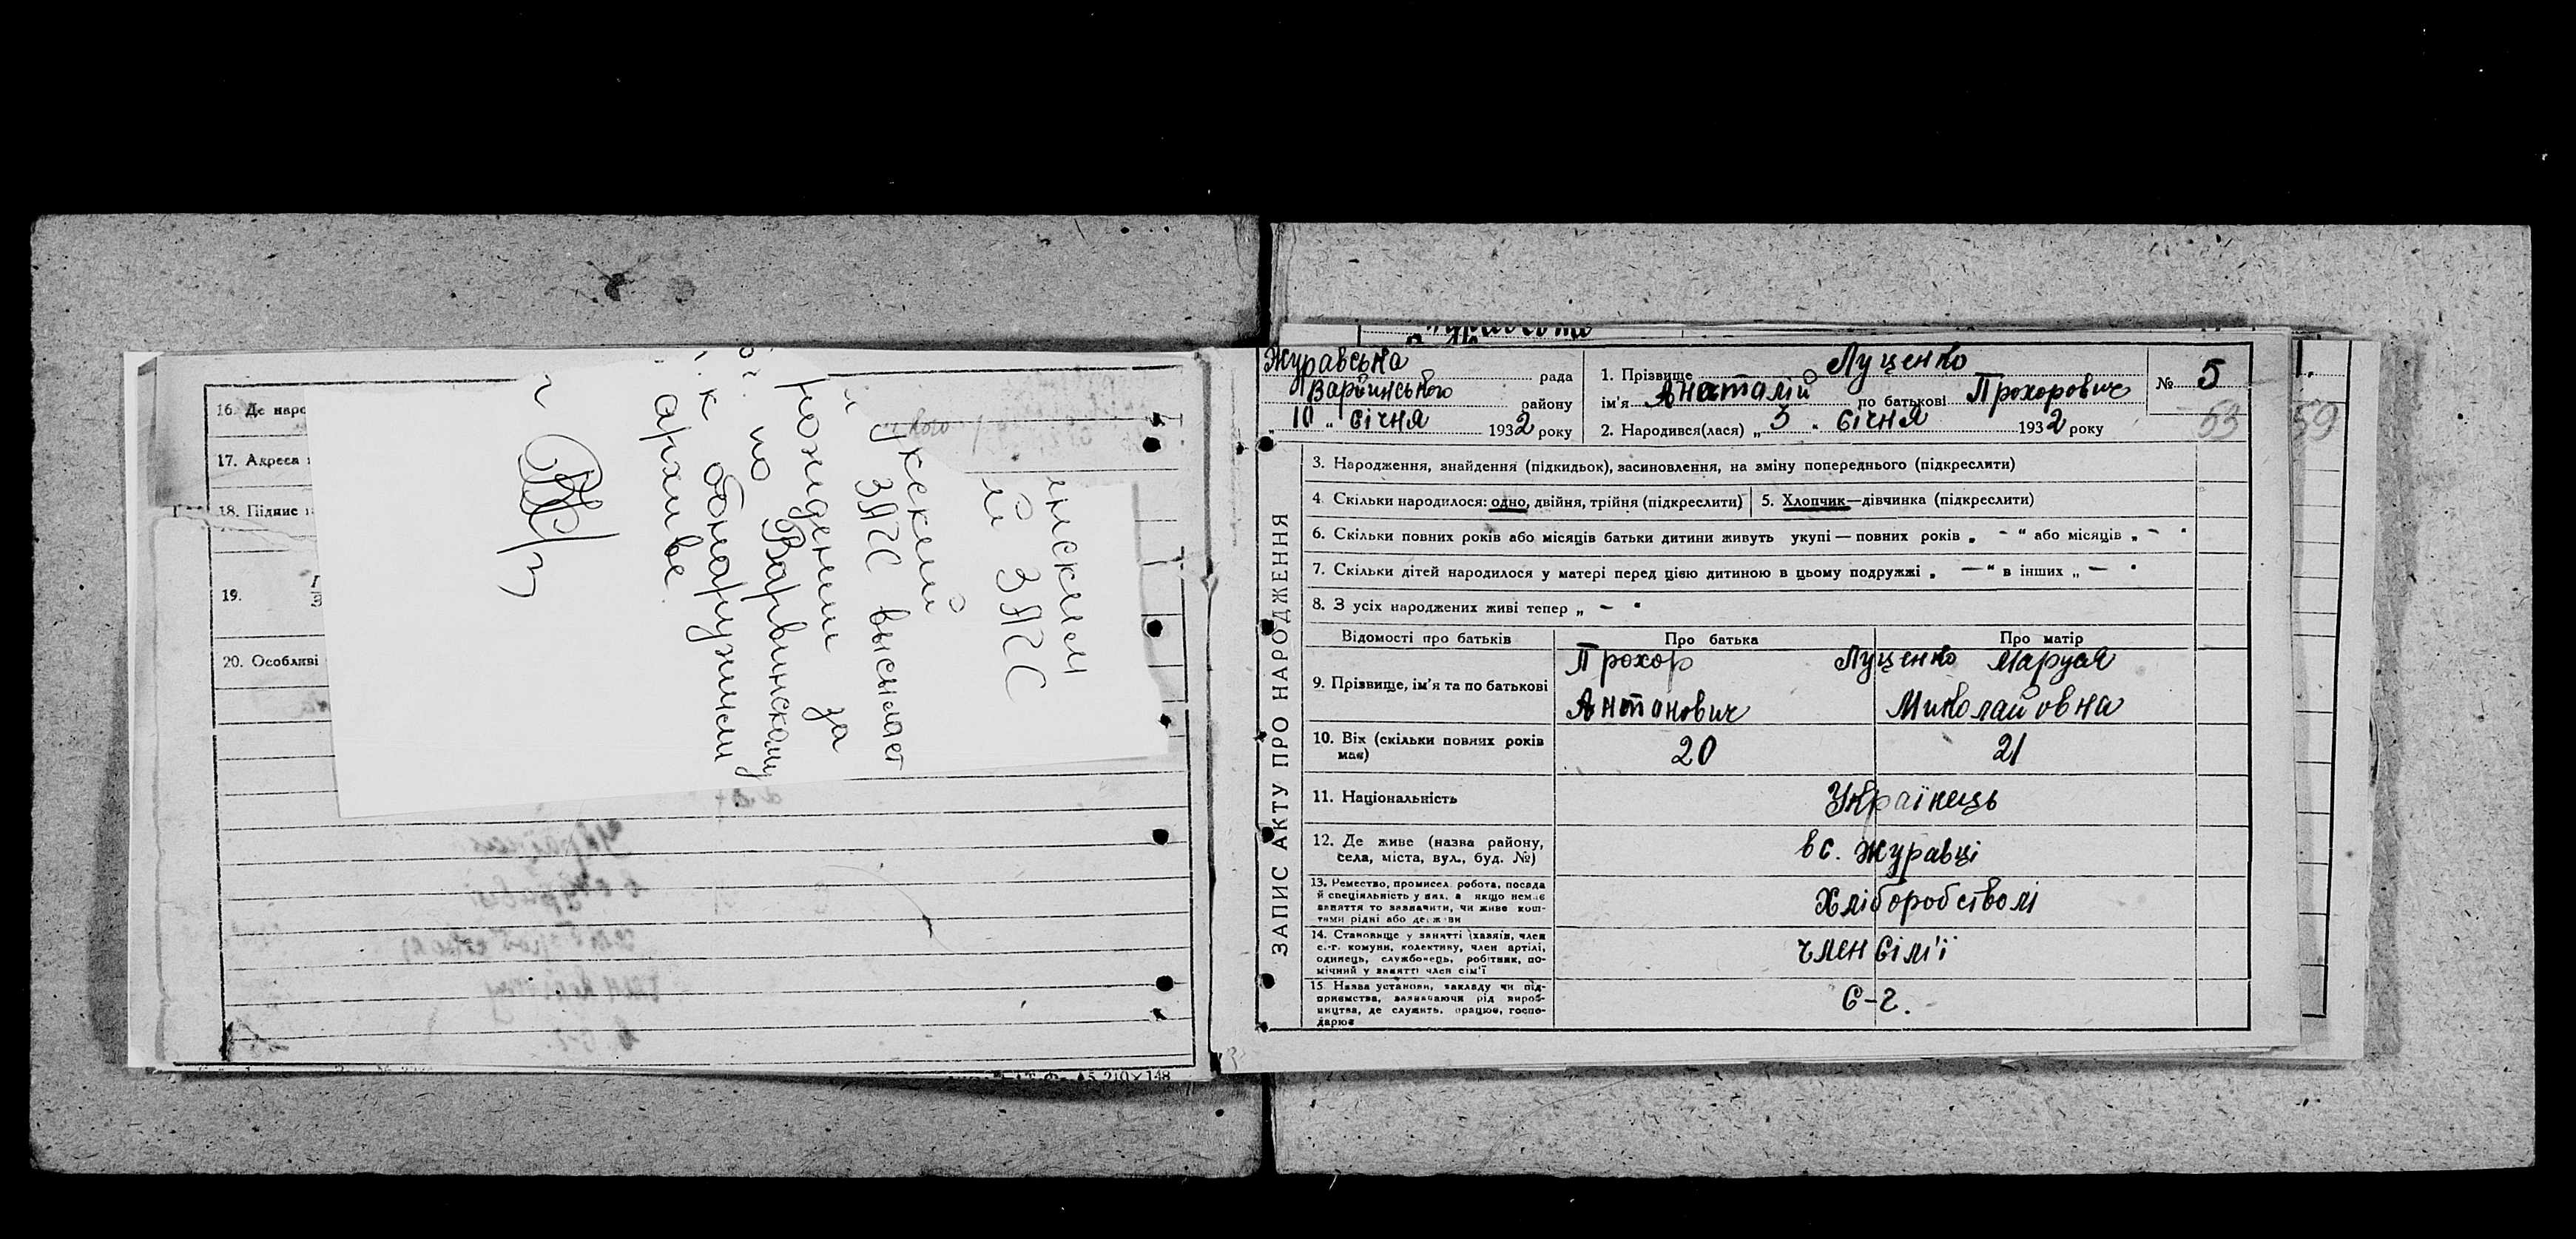 16. Де наро
17. Адреса
18. Підпис
19.
20. Особливі
нским
й ЗАГС
укский
ЗАГС высылает
рождении за
по Варвинскому
к обнаружили
архиве
А5 210×148
Журавська рада
Варвинського району
„ 10 „ січня 1932 року
1. Прізвище Луценко
ім'я Анаталій по батькові Прохорович
2. Народився(лася) „ 3 „ січня 1932 року
№ 5
53
59
1.
ЗАПИС АКТУ ПРО НАРОДЖЕННЯ
3. Народження, знайдення (підкидьок), засиновлення, на зміну попереднього (підкреслити)
4. Скільки народилося: одно, двійня, трійня (підкреслити)
5. Хлопчик—дівчинка (підкреслити)
6. Скільки повних років або місяців батьки дитини живуть укупі — повних років „ – “ або місяців „ – “
7. Скільки дітей народилося у матері перед цією дитиною в цьому подружжі „ — “ в інших „ — “
8. З усіх народжених живі тепер „ – “
Відомості про батьків
Про батька
Про матір
9. Прізвище, ім'я та по батькові
Прохор Луценко Маруся
Антонович Миколайовна
10. Вік (скільки повних років має)
20 21
11. Національність
Українець
12. Де живе (назва району, села, міста, вул., буд. №)
в с. Журавці
13. Ремество, промисел, робота, посада й спеціяльність у них, а якщо немає заняття то зазначити, чи живе коштами рідні або держави
Хліборобством
14. Становище у занятті (хазяїн, член с.-г. комуни, колективу, член артілі, одинець, службовець, робітник, помічний у занятті член сім'ї
член сім'ї
15. Назва установи, закладу чи підприємства, зазначаючи рід виробництва, де служить, працює, господарює
С-г.